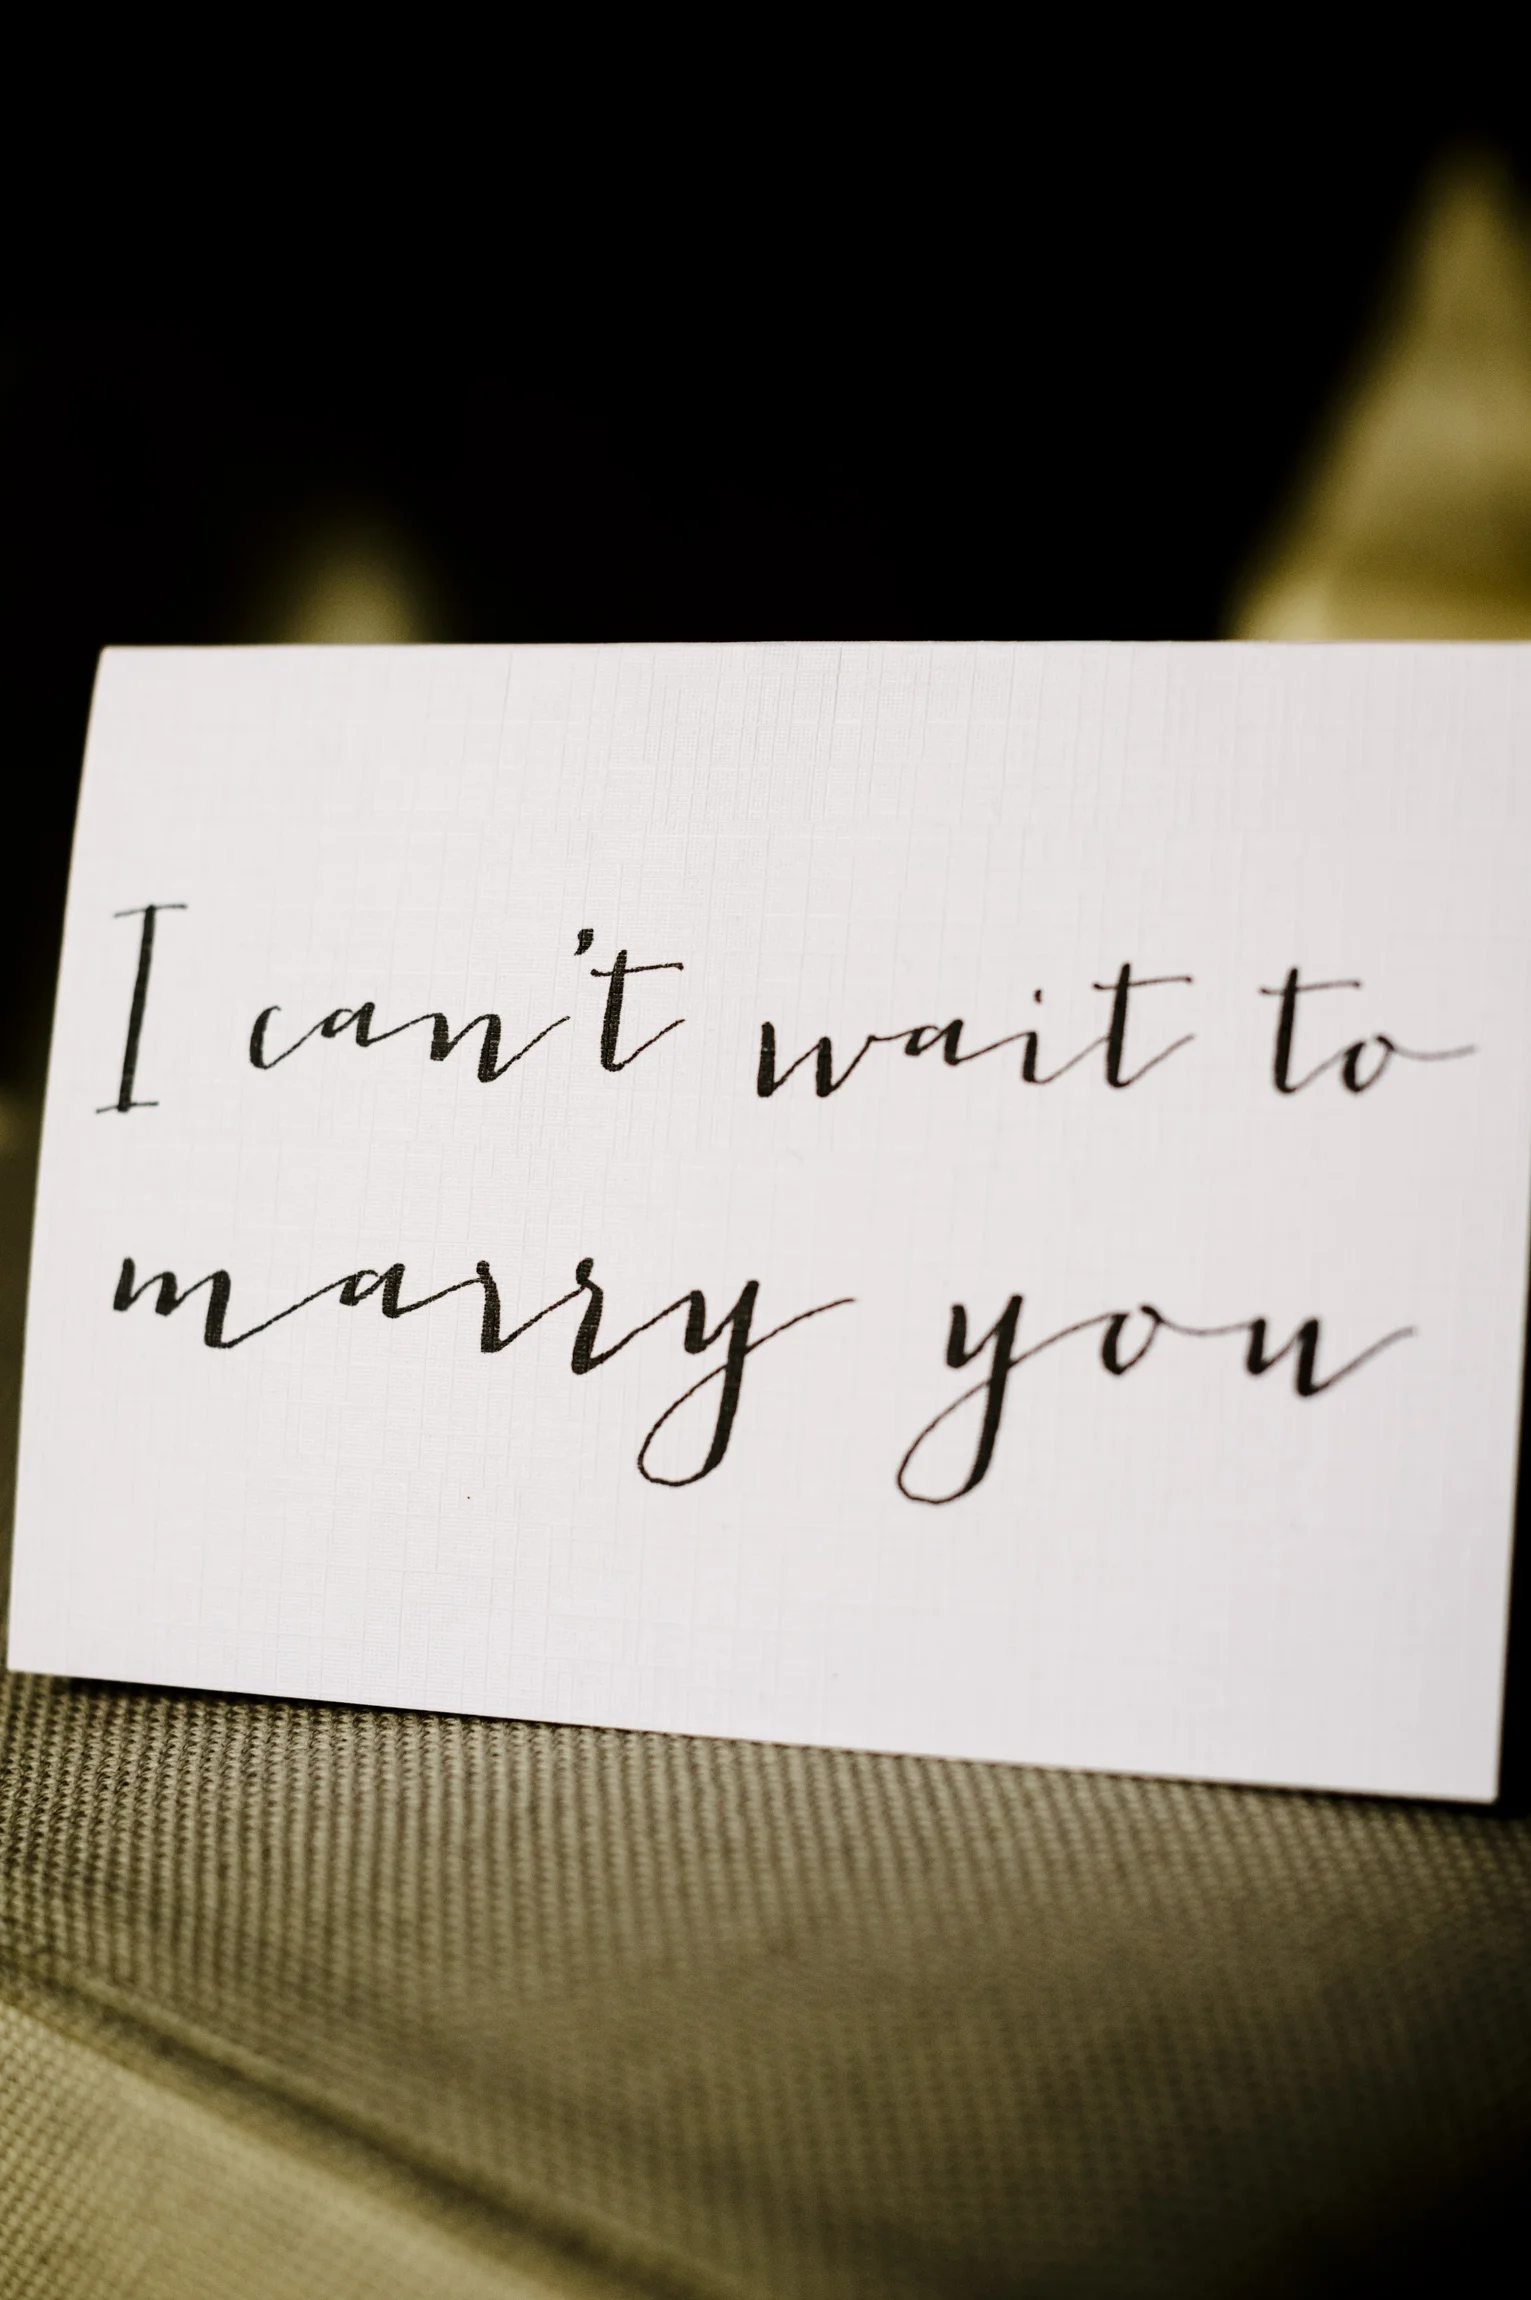 I can't wait to
marry you